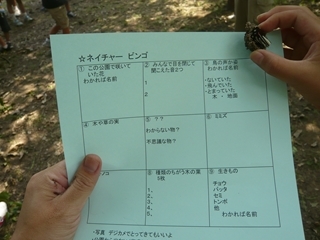 ☆ネイチャー ビンゴ
① この公園で咲いて
いた花
わかれば名前
② みんなで目を閉じて
聞こえた音2つ
1
2
③ 鳥の声か姿
わかれば名前
・ないていた
・飛んでいた
・とまっていた
木 ・ 地面
④ 木や草の実
⑤ ??
わからない物?
不思議な物?
⑥ ミミズ
⑧ 種類のちがう木の葉
5枚
1.
2.
3.
4.
5.
⑨ 生きもの
チョウ
バッタ
セミ
トンボ
他
わかれば名前
・写真 デジカメでとってきてもいいよ